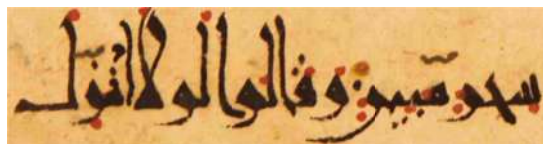 سحر مبين وقالوا لولا انزل